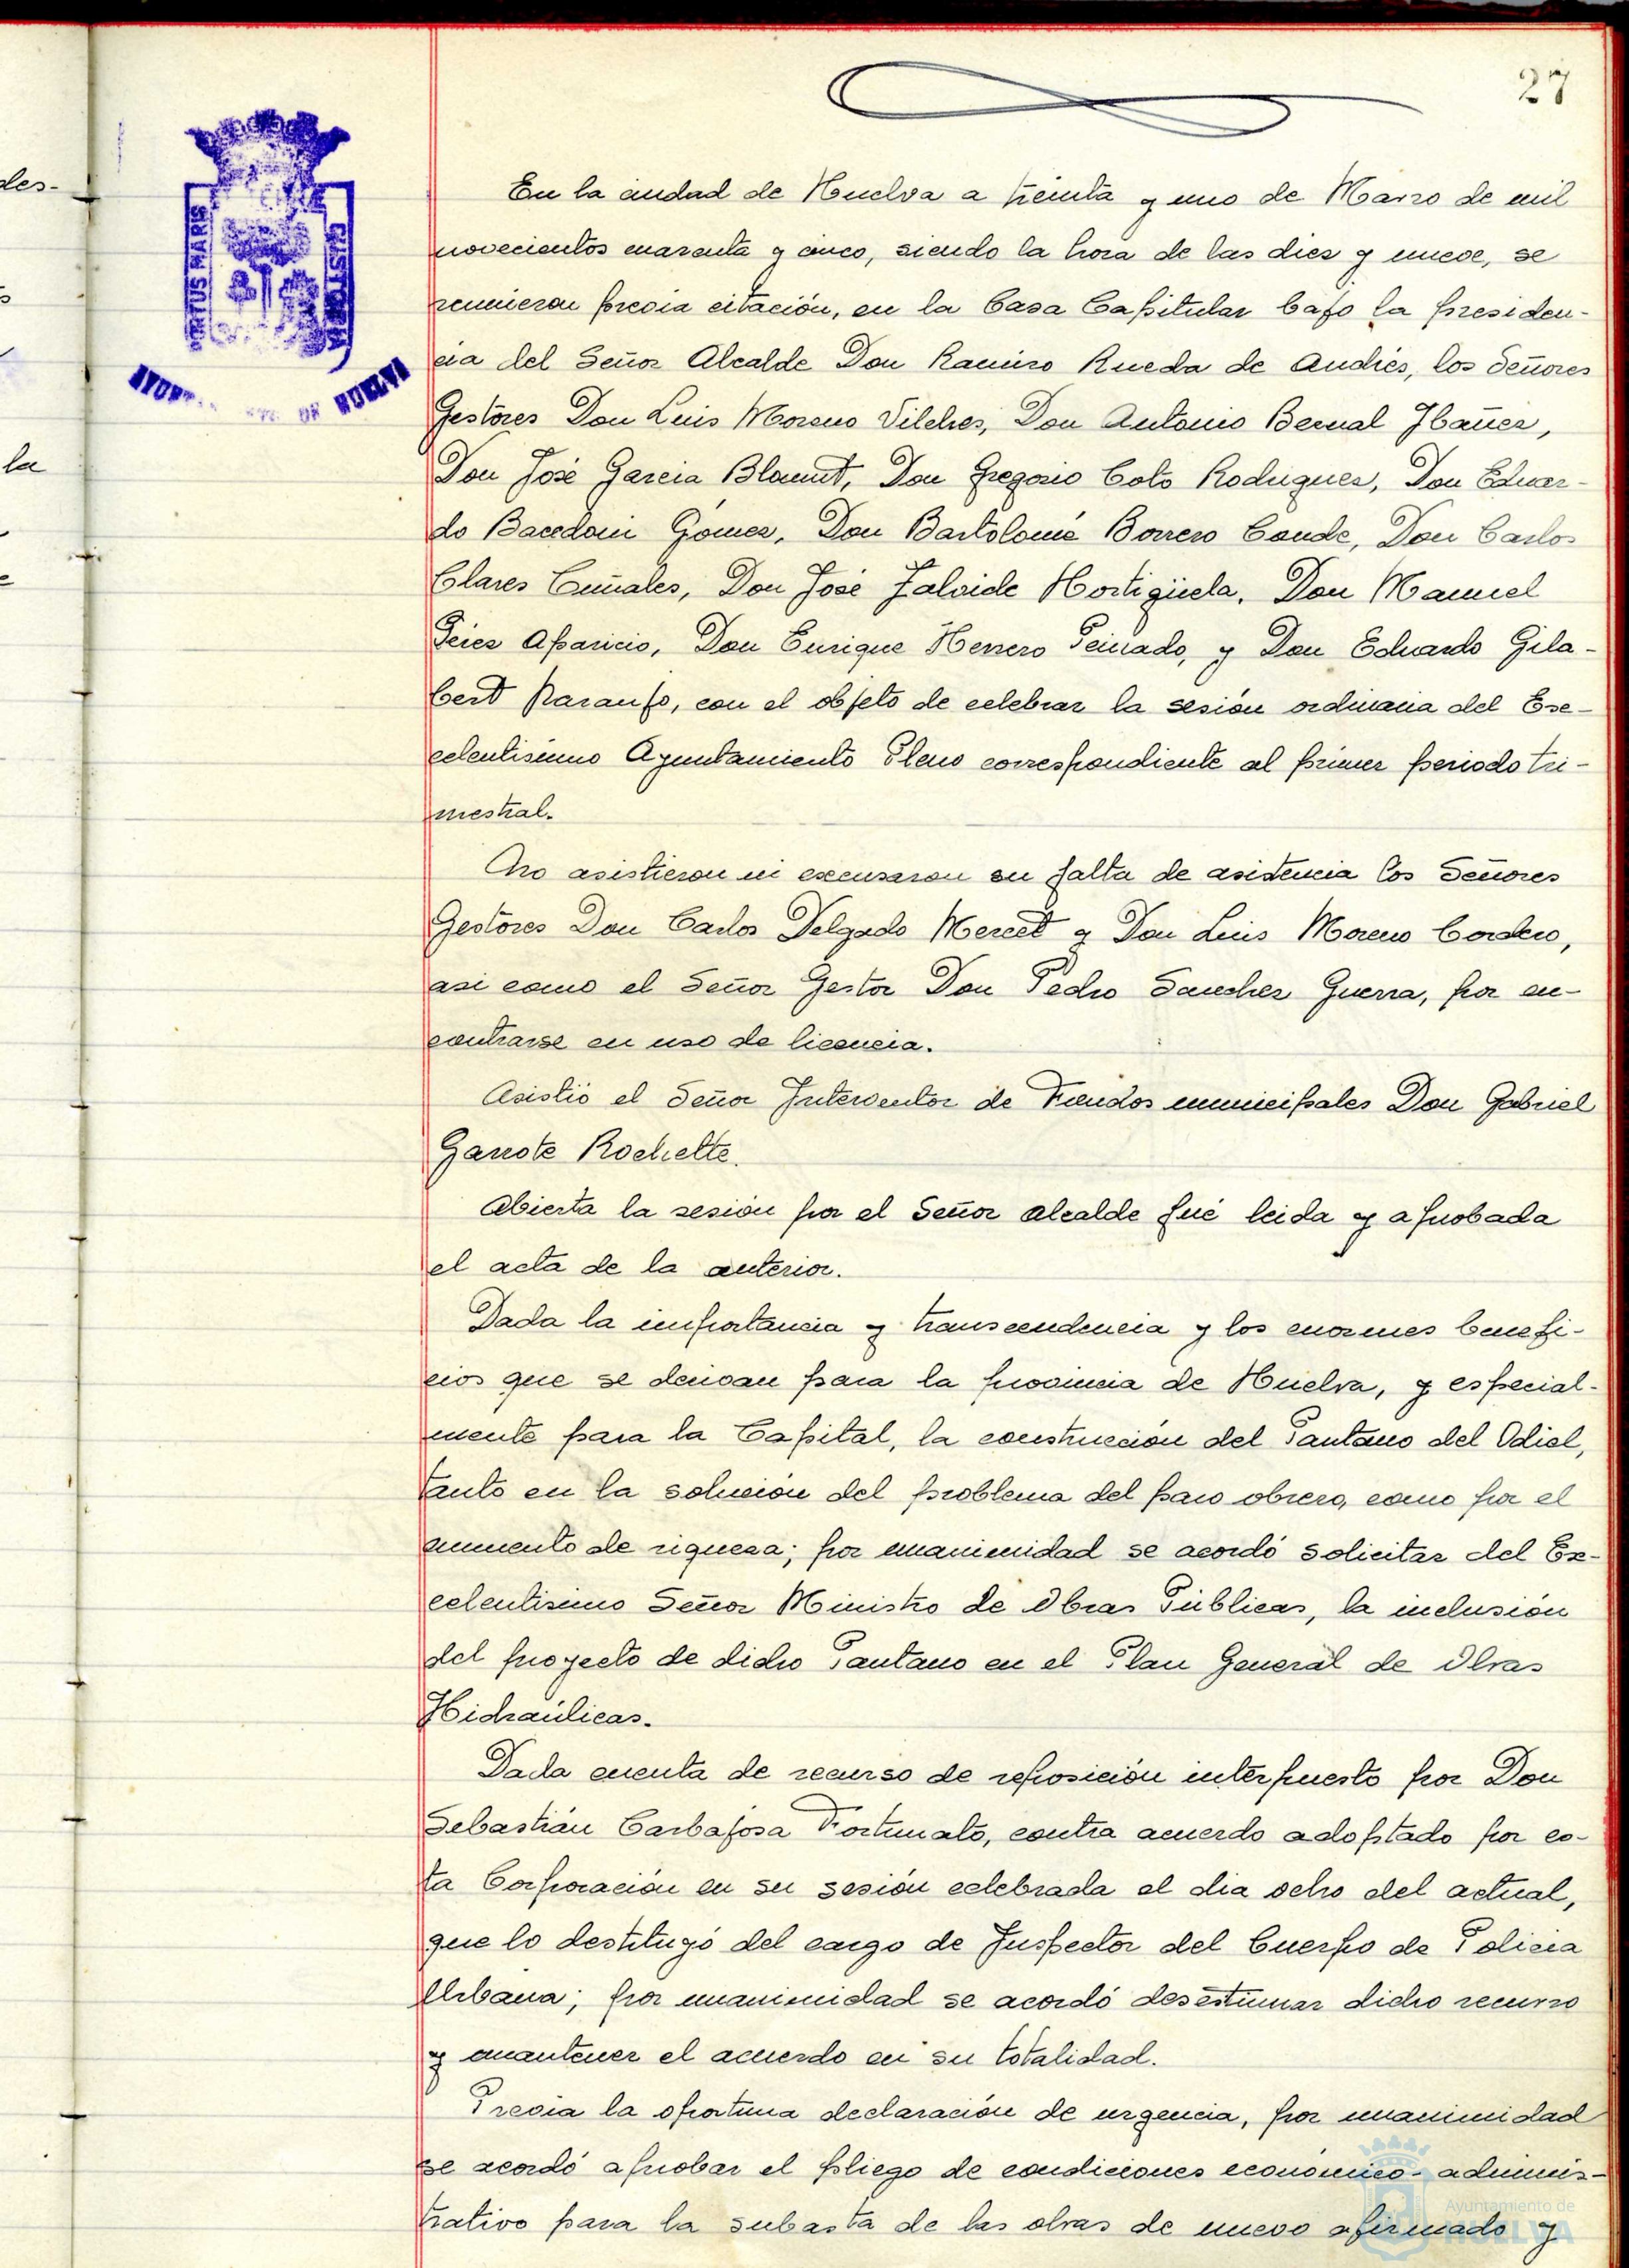 27
des-
la
PORTUS MARIS
CUSTODIA
AYUN... DE HUELVA
En la ciudad de Huelva a treinta y uno de Marzo de mil
novecientos cuarenta y cinco, siendo la hora de las diez y nueve, se
reunieron previa citación, en la Casa Capitular bajo la presiden-
cia del Señor Alcalde Don Ramiro Rueda de Andrés, los Señores
Gestores Don Luis Moreno Vilches, Don Antonio Bernal Ibañez,
Don José Garcia Blaunt, Don Gregorio Coto Rodriguez, Don Eduar-
do Gómez, Don Bartolomé Borrero Conde, Don Carlos
Clares Don José Jalvide Hortigüela, Don Manuel
Aparicio, Don Enrique Herrero Peinado, y Don Eduardo Gila-
bert Naranjo, con el objeto de celebrar la sesión ordinaria del Exe-
celentisimo Ayuntamiento Pleno correspondiente al primer periodo tri-
mestral.
No asistieron ni excusaron su falta de asistencia los Señores
Gestores Don Carlos Delgado Mercet y Don Luis Moreno Cordero,
asi como el Señor Gestor Don Pedro Sanchez Guerra, por en-
contrarse en uso de licencia.
Asistió el Señor Interventor de Fondos municipales Don Gabriel
Garrote Rochette.
Abierta la sesión por el Señor Alcalde fué leida y aprobada
el acta de la anterior.
Dada la importancia y transcendencia y los enormes benefi-
cios que se derivan para la provincia de Huelva, y especial-
mente para la Capital, la construcción del Pantano del Odiel,
tanto en la solución del problema del paro obrero, como por el
aumento de riqueza; por unanimidad se acordó solicitar del Ex-
celentisimo Señor Ministro de Obras Públicas, la inclusión
del proyecto de dicho Pantano en el Plan General de Obras
Hidraúlicas.
Dada cuenta de recurso de reposición interpuesto por Don
Sebastián Carbajosa Fortunato, contra acuerdo adoptado por es-
ta Corporación en su sesión celebrada el dia ocho del actual,
que lo destituyó del cargo de Inspector del Cuerpo de Policia
Urbana; por unanimidad se acordó desestimar dicho recurso
y mantener el acuerdo en su totalidad.
Previa la oportuna declaración de urgencia, por unanimidad
se acordó aprobar el pliego de condiciones económico-adminis-
trativo para la subasta de las obras de nuevo afirmado y
Ayuntamiento de
HUELVA